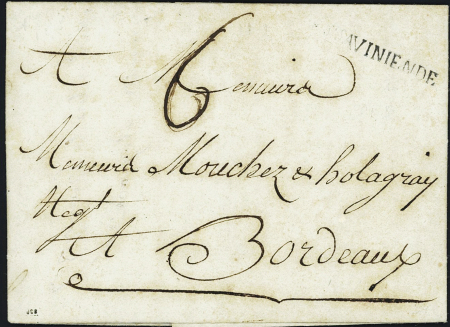 A Messieurs
6
Messieurs Mouchez & holagray
Negt
A Bordeaux